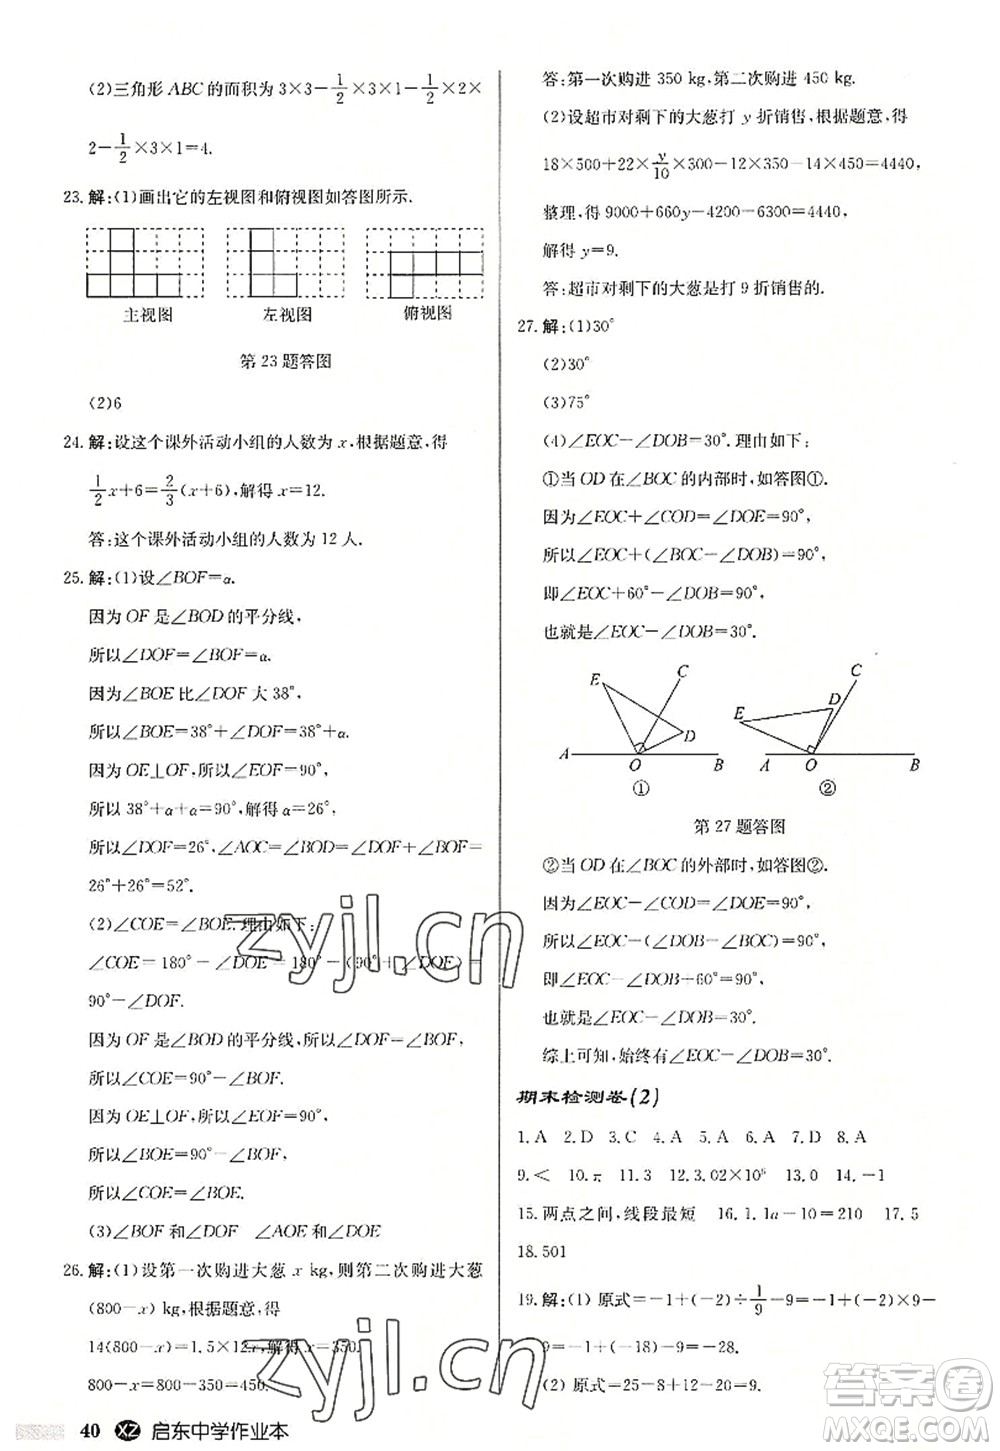 (2)三角形 ABC 的面积为 3×3−1/2×3×1−1/2×2×
2−1/2×3×1=4.
23. 解:(1)画出它的左视图和俯视图如答图所示.
主视图 左视图 俯视图
第 23 题答图
(2)6
24. 解:设这个课外活动小组的人数为 x,根据题意,得
1/2x+6=2/3(x+6),解得 x=12.
答:这个课外活动小组的人数为 12 人.
25. 解:(1)设∠BOF=α.
因为 OF 是∠BOD 的平分线,
所以∠DOF=∠BOF=α.
因为∠BOE 比∠DOF 大 38°,
所以∠BOE=38°+∠DOF=38°+α.
因为 OE⊥OF,所以∠EOF=90°,
所以 38°+α+α=90°,解得 α=26°,
所以∠DOF=26°,∠AOC=∠BOD=∠DOF+∠BOF=
26°+26°=52°.
(2)∠COE=∠BOE.理由如下:
∠COE=180°−∠DOE=180°−(90°+∠DOF)=
90°−∠DOF.
因为 OF 是∠BOD 的平分线,所以∠DOF=∠BOF,
所以∠COE=90°−∠BOF.
因为 OE⊥OF,所以∠EOF=90°,
所以∠BOE=90°−∠BOF,
所以∠COE=∠BOE.
(3)∠BOF 和∠DOF ∠AOE 和∠DOE
26. 解:(1)设第一次购进大葱 x kg,则第二次购进大葱
(800−x) kg,根据题意,得
14(800−x)=1.5×12x,解得 x=350.
800−x=800−350=450.
40 XZ 启东中学作业本
答:第一次购进 350 kg,第二次购进 450 kg.
(2)设超市对剩下的大葱打 y 折销售,根据题意,得
18×500+22×y/10×300−12×350−14×450=4440,
整理,得 9000+660y−4200−6300=4440,
解得 y=9.
答:超市对剩下的大葱是打 9 折销售的.
27. 解:(1)30°
(2)30°
(3)75°
(4)∠EOC−∠DOB=30°.理由如下:
①当 OD 在∠BOC 的内部时,如答图①.
因为∠EOC+∠COD=∠DOE=90°,
所以∠EOC+(∠BOC−∠DOB)=90°,
即∠EOC+60°−∠DOB=90°,
也就是∠EOC−∠DOB=30°.
E C D A O B ①
E D C A O B ②
第 27 题答图
②当 OD 在∠BOC 的外部时,如答图②.
因为∠EOC−∠COD=∠DOE=90°,
所以∠EOC−(∠DOB−∠BOC)=90°,
即∠EOC−∠DOB+60°=90°,
也就是∠EOC−∠DOB=30°.
综上可知,始终有∠EOC−∠DOB=30°.
期末检测卷(2)
1. A 2. D 3. C 4. A 5. A 6. A 7. D 8. A
9. < 10. π 11. 3 12. 3.02×10⁶ 13. 0 14. −1
15. 两点之间,线段最短 16. 1.1a−10=210 17. 5
18. 501
19. 解:(1) 原式=−1+(−2)÷1/9−9=−1+(−2)×
9−9=−1+(−18)−9=−28.
(2) 原式=25−8−12+4=9.
zyjl.cn
zyjl.cn
答案圈
MXQE.COM